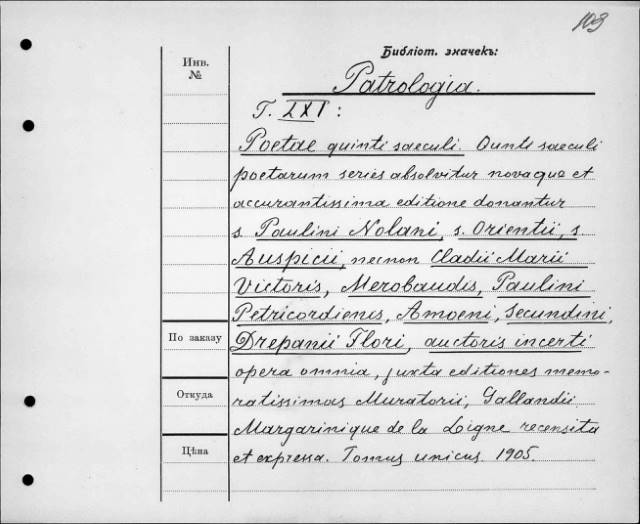 103
Библіот. значекъ:
Инв.
№
Patrologia.
T. LXI:
Poetae quinti saeculi. Qunti saeculi
poetarum series absolvitur novaque et
accurantissima editione donantur
s. Paulini Nolani, s. Orientii, s
Auspicii, necnon Cladii Marii
Victoris, Merobaudis, Paulini
Petricordienis, Amoeni, Secundini,
По заказу
Drepanii Flori, auctoris incerti
opera omnia, juxta editiones memo-
Откуда
ratissimas Muratorii, Gallandii
Margarinique de la Digne recensita
Цѣна
et expressa. Tomus unicus. 1905.